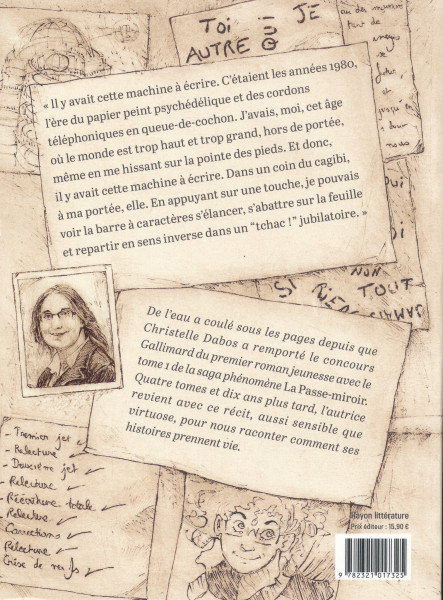 TOI
JE
AUTRE
« Il y avait cette machine à écrire. C'étaient les années 1980,
l'ère du papier peint psychédélique et des cordons
téléphoniques en queue-de-cochon. J'avais, moi, cet âge
où le monde est trop haut et trop grand, hors de portée,
même en me hissant sur la pointe des pieds. Et donc,
il y avait cette machine à écrire. Dans un coin du cagibi,
à ma portée, elle. En appuyant sur une touche, je pouvais
voir la barre à caractères s'élancer, s'abattre sur la feuille
et repartir en sens inverse dans un “tchac !” jubilatoire. »
NON
TOUT
De l'eau a coulé sous les pages depuis que
Christelle Dabos a remporté le concours
Gallimard du premier roman jeunesse avec le
tome 1 de la saga phénomène La Passe-miroir.
Quatre tomes et dix ans plus tard, l'autrice
revient avec ce récit, aussi sensible que
virtuose, pour nous raconter comment ses
histoires prennent vie.
- Premier jet
- Relecture
- Deuxième jet
- Relecture
- Réécriture totale
- Relecture
- Corrections
- Relecture
- Crise de nerfs
Rayon littérature
Prix éditeur : 15,90 €
9 782321 017325